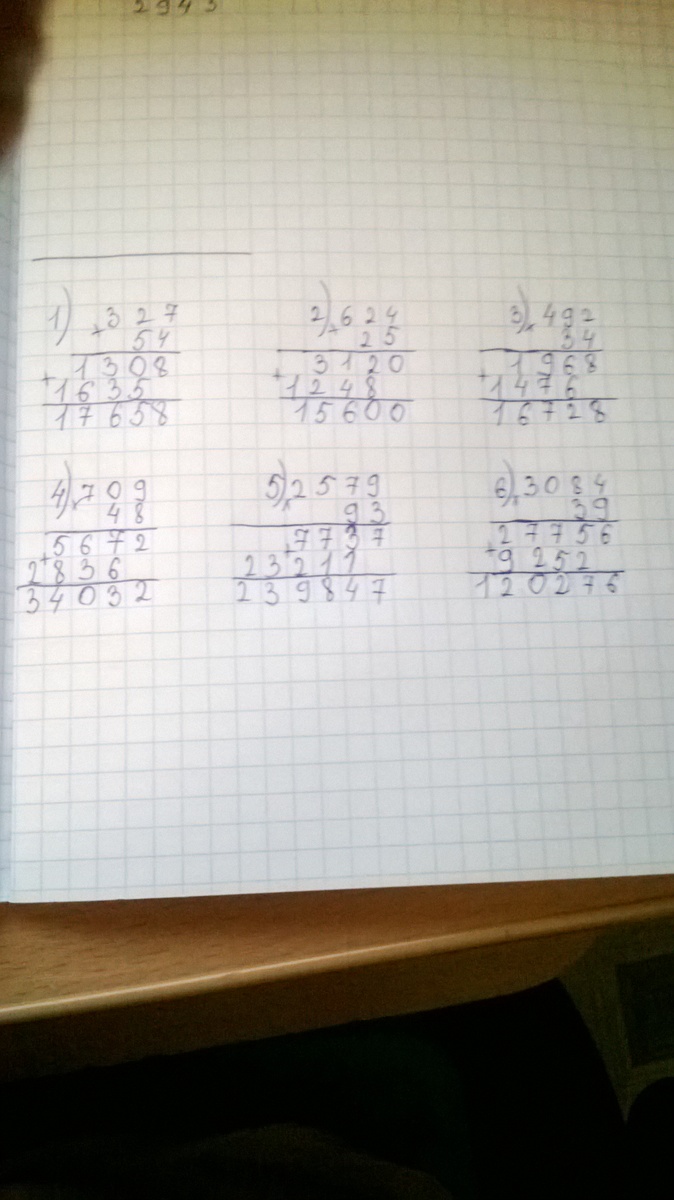 2943
1) × 327 2) × 624 3) × 492
54 25 34
1308 3120 1968
+ + +
1635 1248 1476
17658 15600 16728
4) × 709 5) × 2579 6) × 3084
48 93 39
5672 7737 27756
+ + +
2836 23211 9252
34032 239847 120276